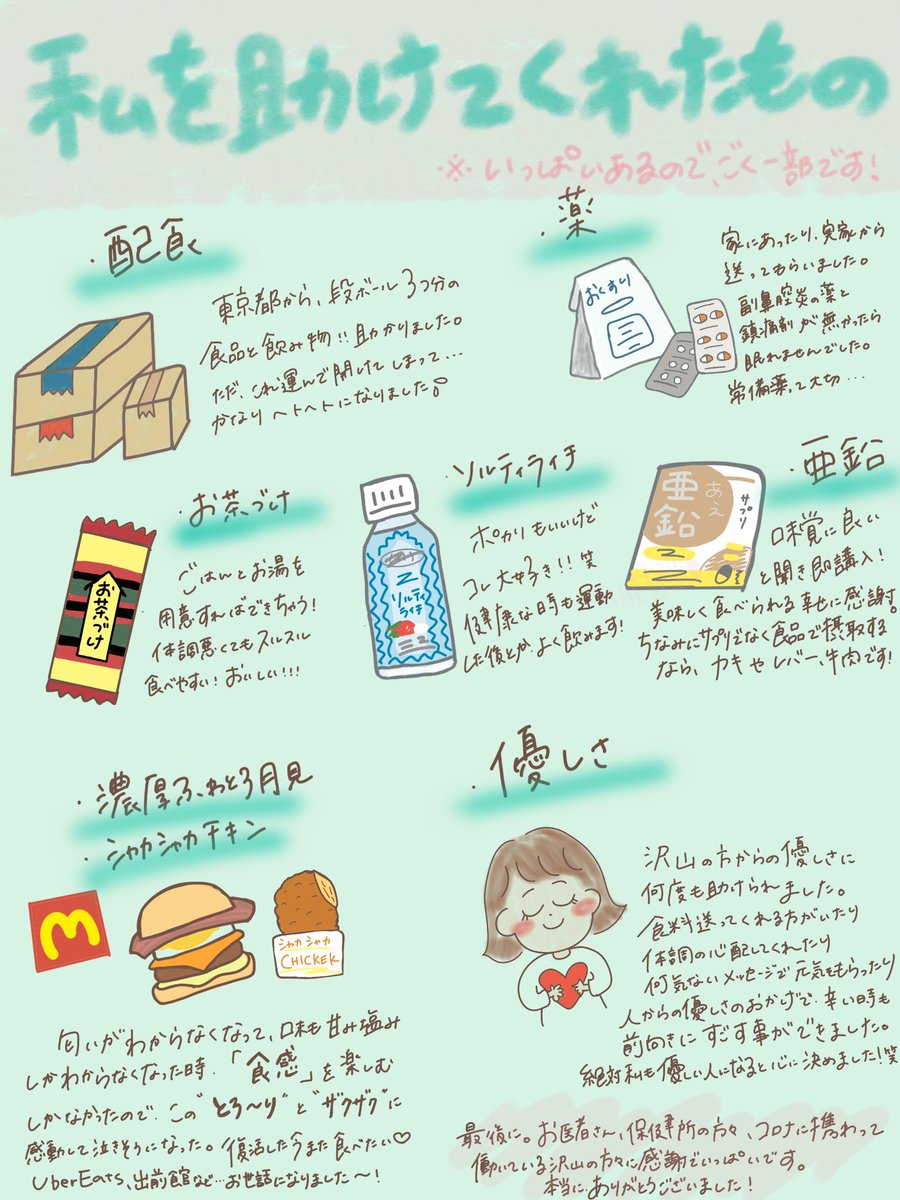 私を助けてくれたもの
※いっぱいあるので、ごく一部です！
・配食
東京都から、段ボール3つ分の
食品と飲み物!! 助かりました。
ただ、これ運んで開けてしまって…
かなりヘトヘトになりました。
・薬
おくすり
家にあったり、実家から
送ってもらいました。
副鼻腔炎の薬と
鎮痛剤が無かったら
眠れませんでした。
常備薬って大切…
・お茶づけ
お茶づけ
ごはんとお湯を
用意すればできちゃう！
体調悪くてもスルスル
食べやすい！おいしい!!!
・ソルティライチ
ソルティ
ライチ
ポカリもいいけど
コレ大好き!! 笑
健康な時も運動
した後とか、よく飲みます！
・亜鉛
亜鉛
あえん
サプリ
味覚に良い
と聞き即購入！
美味しく食べられる幸せに感謝。
ちなみにサプリでなく食品で摂取する
なら、カキやレバー、牛肉です！
・濃厚ふわとろ月見
・シャカシャカチキン
M
シャカシャカ
CHICKEK
匂いがわからなくなって、味も甘み塩み
しかわからなくなった時、「食感」を楽しむ
しかなかったので、この"とろ〜り"と"ザクザク"に
感動して泣きそうになった。復活した今また食べたい♡
UberEats、出前館など…お世話になりました〜！
・優しさ
沢山の方からの優しさに
何度も助けられました。
食料送ってくれる方がいたり
体調の心配してくれたり
何気ないメッセージで元気をもらったり
人からの優しさのおかげで、辛い時も
前向きにすごす事ができました。
絶対私も優しい人になると心に決めました！笑
最後に。お医者さん、保健所の方々、コロナに携わって
働いている沢山の方々に感謝でいっぱいです。
本当にありがとうございました！